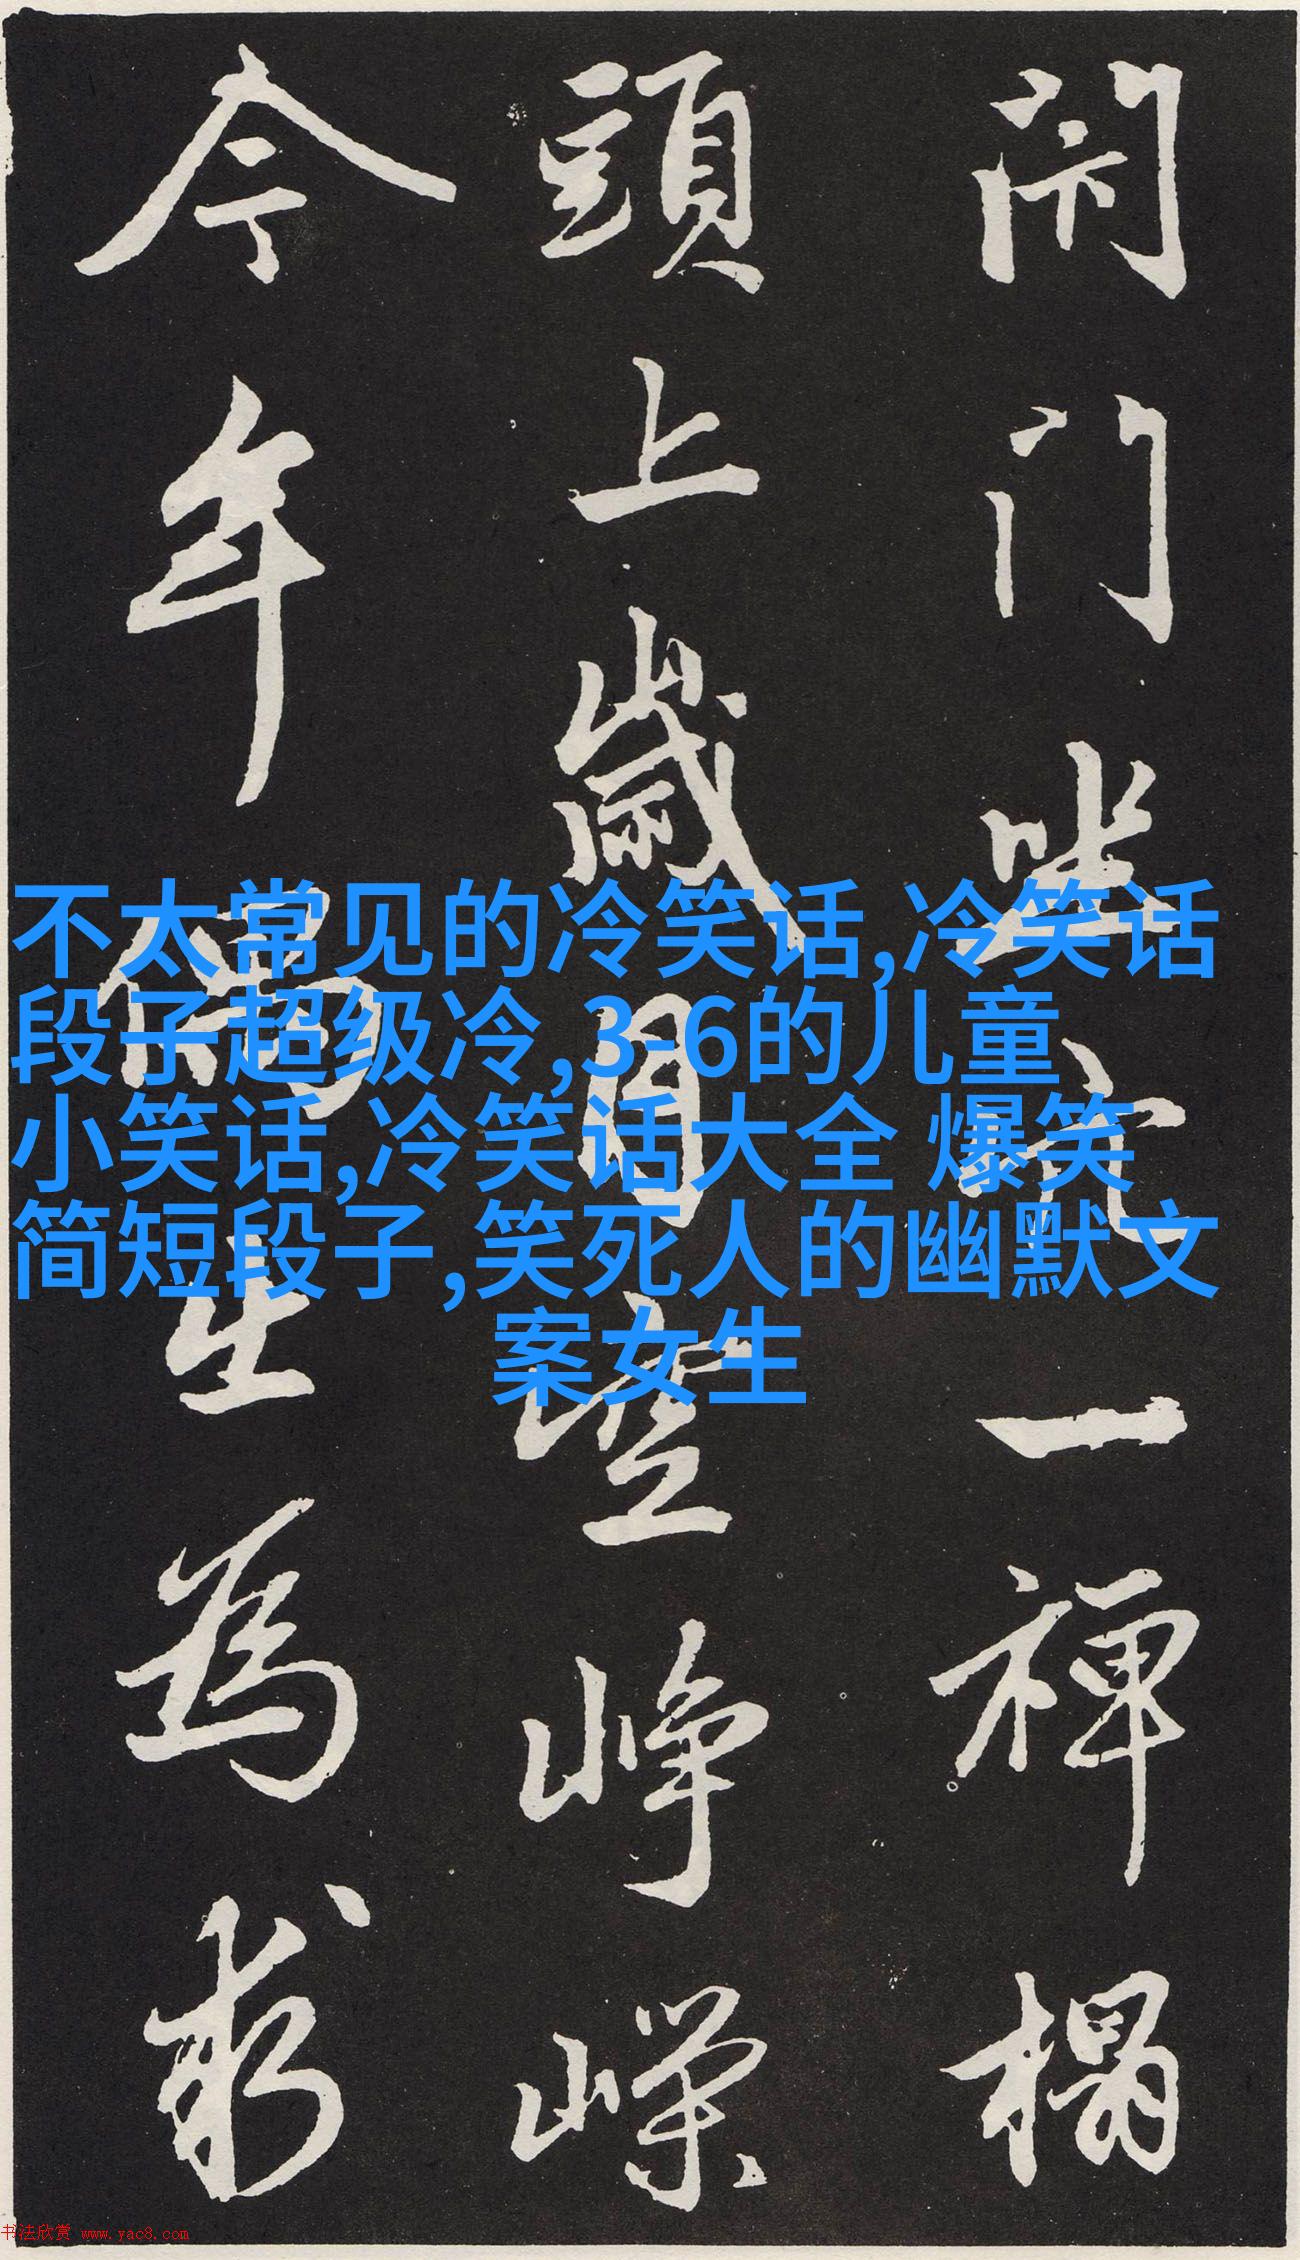 闹门坐穴一禅榻
頭上歲月空峥嵘
今年偶出為求
不太常见的冷笑话,冷笑话
段子超级冷,3-6的儿童
小笑话,冷笑话大全 爆笑
简短段子,笑死人的幽默文
案女生
书法欣赏 www.yac8.com